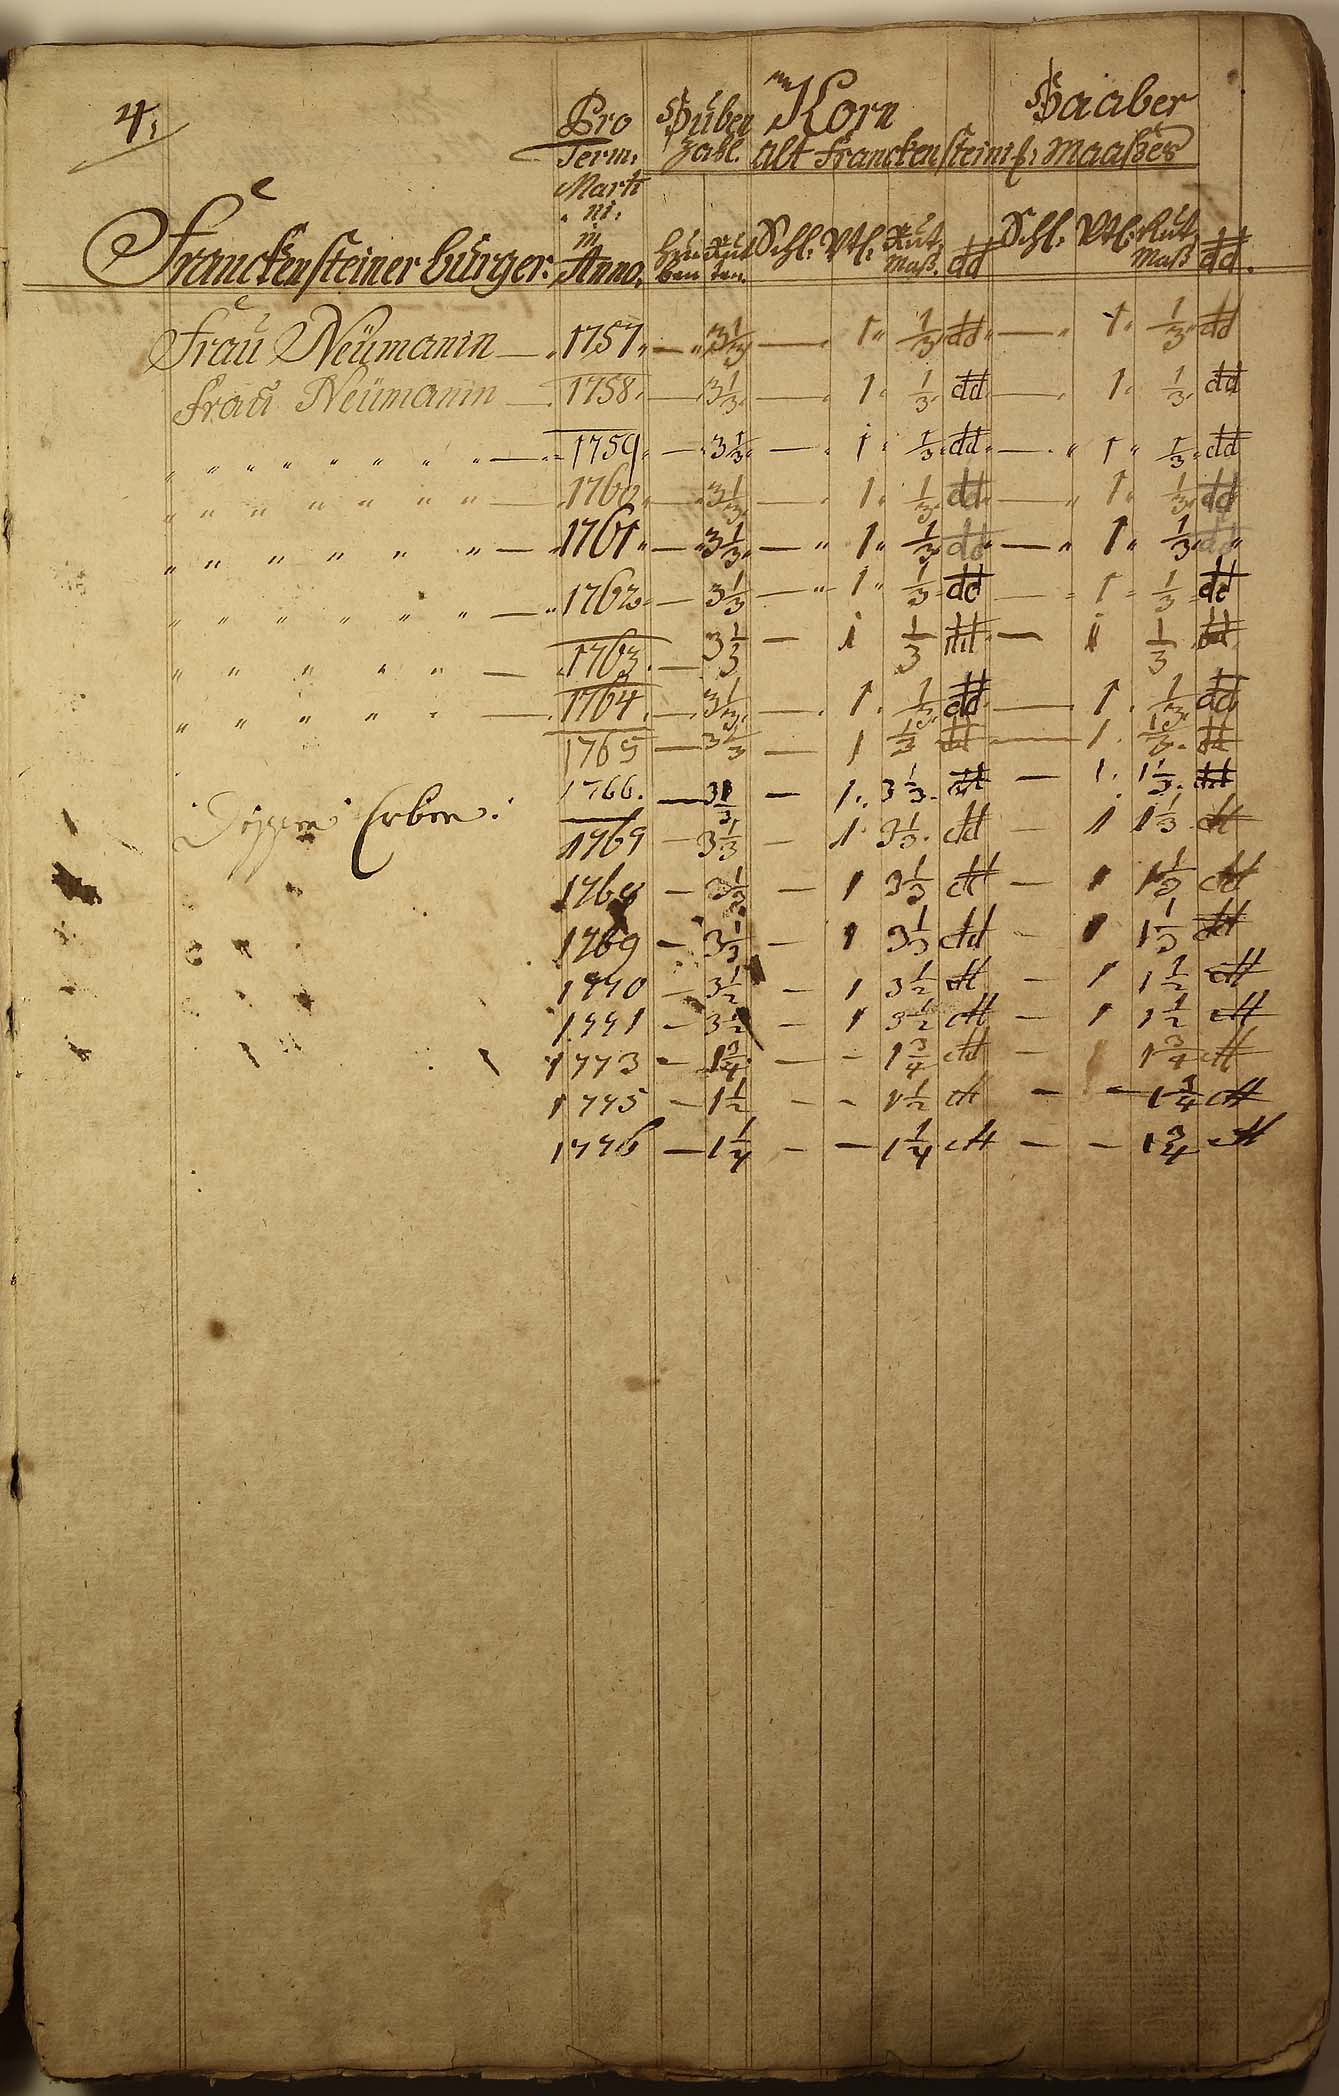 4.
Pro Huben Korn Haaber
Term: Zahl. alt Franckensteinis: Maaßes
Marti
ni.
in
Franckensteiner bürger. Anno. Huben Ruten Schl: Vtl: Rut Maß dd Schl: Vtl: Rut Maß dd.
Frau Neümanin — 1757 — 3 1/3 — 1 1/3 dd — 1 1/3 dd
Frau Neümanin 1758 — 3 1/3 — 1 1/3 dd — 1 1/3 dd
" " " " " " " " — 1759 — 3 1/3 — 1 1/3 dd — 1 1/3 dd
" " " " " " " — 1760 — 3 1/3 — 1 1/3 dd — 1 1/3 dd
" " " " " " — 1761 — 3 1/3 — 1 1/3 dd — 1 1/3 dd
" " " " " " — 1762 — 3 1/3 — 1 1/3 dd — 1 1/3 dd
" " " " " — 1763 — 3 1/3 — 1 1/3 dd — 1 1/3 dd
" " " " " — 1764 — 3 1/3 — 1 1/3 dd — 1 1/3 dd
1765 — 3 1/3 — 1 1/3 dd — 1 1/3 dd
1766 — 3 1/3 — 1 3 1/3 dd — 1 1 1/3 dd
Erben: 1767 — 3 1/3 — 1 3 1/3 dd — 1 1 1/3 dd
1768 — 3 1/3 — 1 3 1/3 dd — 1 1 1/3 dd
1769 — 3 1/3 — 1 3 1/3 dd — 1 1 1/3 dd
1770 — 3 1/2 — 1 3 1/2 dd — 1 1 1/2 dd
1771 — 3 1/2 — 1 3 1/2 dd — 1 1 1/2 dd
1773 — 1 3/4 — — 1 3/4 dd — 1 3/4 dd
1775 — 1 1/2 — — 1 1/2 dd — — 1 3/4 dd
1776 — 1 1/4 — — 1 1/4 dd — — 1 3/4 dd